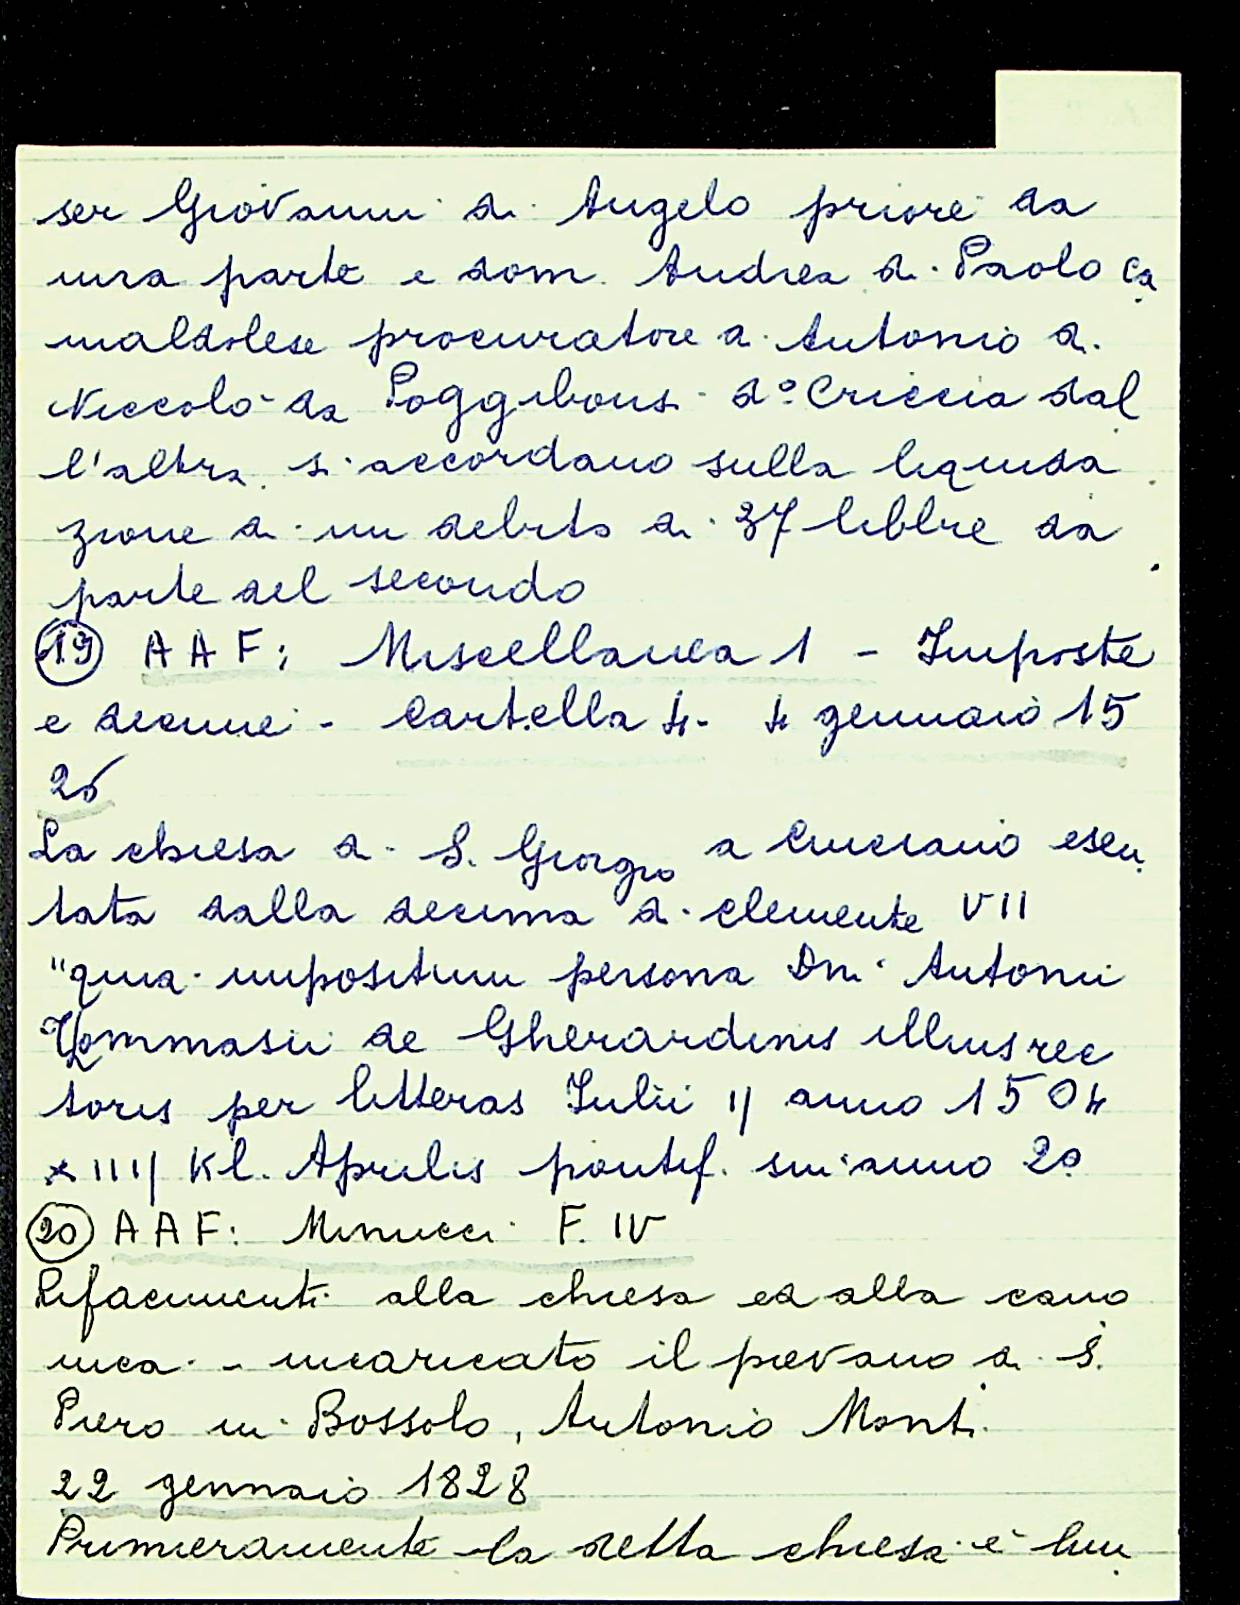 ser Giovanni di Angelo priore da
una parte e dom. Andrea di Paolo ca
maldolese procuratore di Antonio di
Niccolò da Poggibonsi do Criccia dal
l'altra si accordano sulla liquida
zione di un debito di 37 libbre da
parte del secondo
19 AAF: Miscellanea 1 - Imposte
e decime - Cartella 4 - 4 gennaio 15
26
La chiesa di S. Giorgio a Cinciano esen
tata dalla decima di Clemente VII
"quia impositum persona Dni Antonii
Tommasii de Gherardinis illius rec
toris per litteras Iulii II anno 1504
XIIII Kl. Aprilis pontif. sui anno 2º
20 AAF: Minucci F. IV
Rifacimenti alla chiesa ed alla cano
nica - incaricato il pievano di S.
Piero in Bossolo, Antonio Monti
22 gennaio 1828
Primieramente la detta chiesa è lun